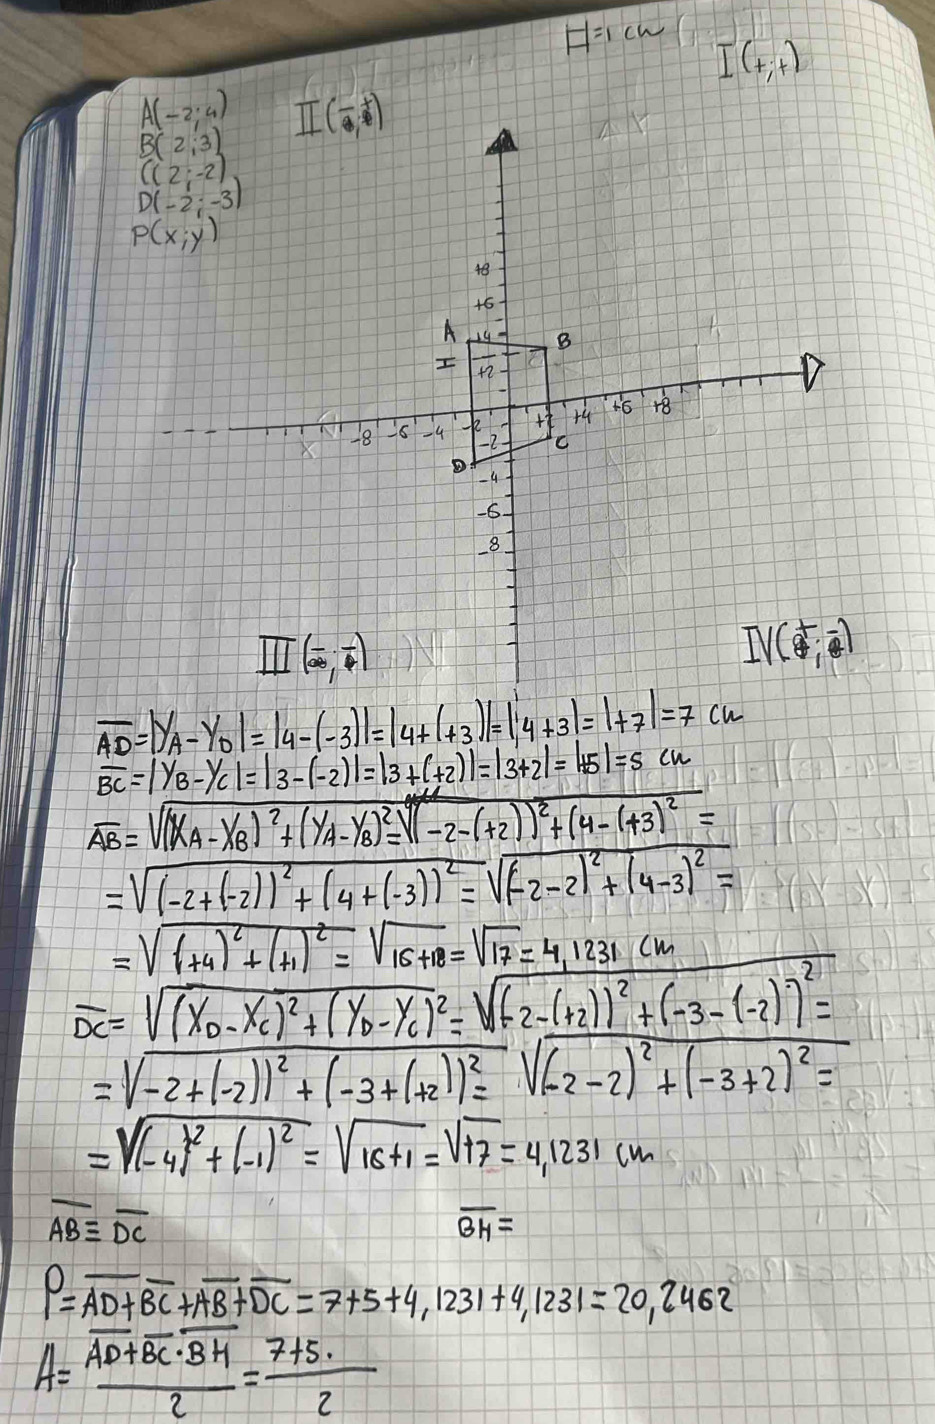 H=1 cm
I(+;+)
II(-;+)
A(-2;4)
B(2;3)
C(2;-2)
D(-2;-3)
P(x;y)
+8
+6
A +4 B
H +2
-8 -6 -4 -2 +2 +4 +6 +8
-2 C
D -4
-6
-8
III(-;-)
IV(+;-)
AD=|YA-YD|=|4-(-3)|=|4+(+3)|=|4+3|=|+7|=7 cm
BC=|YB-YC|=|3-(-2)|=|3+(+2)|=|3+2|=|+5|=5 cm
AB=√(XA-XB)²+(YA-YB)²=√(-2-(+2))²+(4-(+3)²=
=√(-2+(-2))²+(4+(-3))²=√(-2-2)²+(4-3)²=
=√(+4)²+(+1)²=√16+18=√17=4,1231 cm
DC=√(XD-XC)²+(YD-YC)²=√(-2-(+2))²+(-3-(-2))²=
=√-2+(-2))²+(-3+(+2))²= √(-2-2)²+(-3+2)²=
=√(-4)²+(-1)²=√16+1=√+7=4,1231 cm
AB≡DC BH=
P=AD+BC+AB+DC=7+5+4,1231+4,1231=20,2462
A=AD+BC·BH/2=7+5·/2